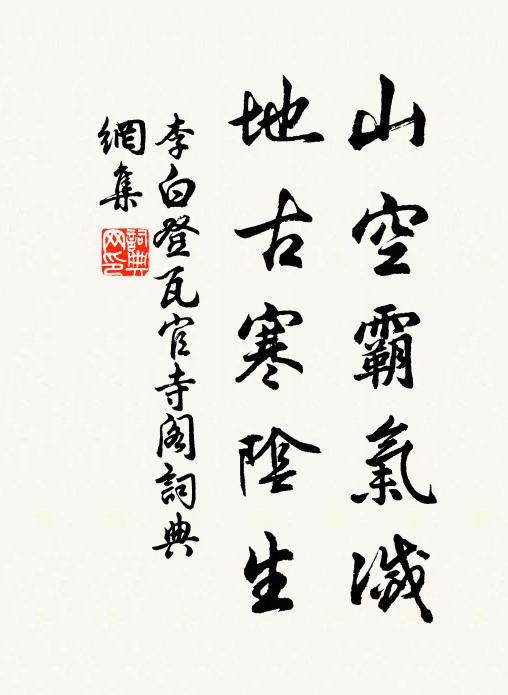 山空霸氣滅
地古寒陰生
李白登瓦官寺阁詞典
網集
詞典网印